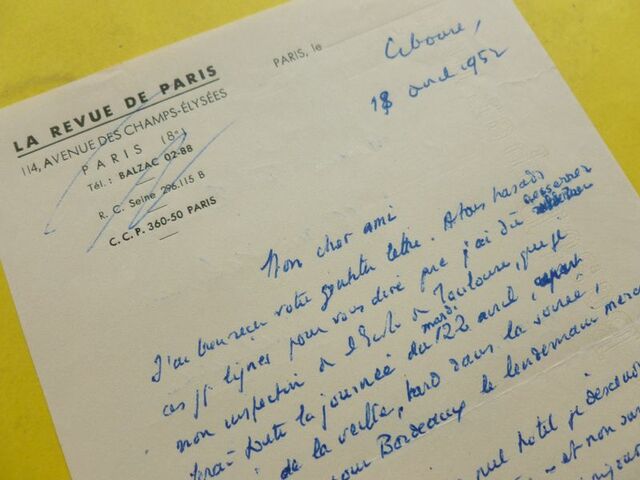 LA REVUE DE PARIS
114, AVENUE DES CHAMPS-ÉLYSÉES
PARIS (8e)
Tél. : BALZAC 02-88
R. C. Seine 296.115 B
C. C. P. 360-50 PARIS
PARIS, le
Ciboure,
18 avril 1952
Mon cher ami
J'ai bien reçu votre gentille lettre. A tous hasards
ces lignes pour vous dire que j'ai dû resserrer
mon inspection de l'Ecole de Toulouse, que je
ferai toute la journée du mardi 22 avril,
de la veille, tard dans la soirée,
pour Bordeaux le lendemain
hôtel je descendrai
et non